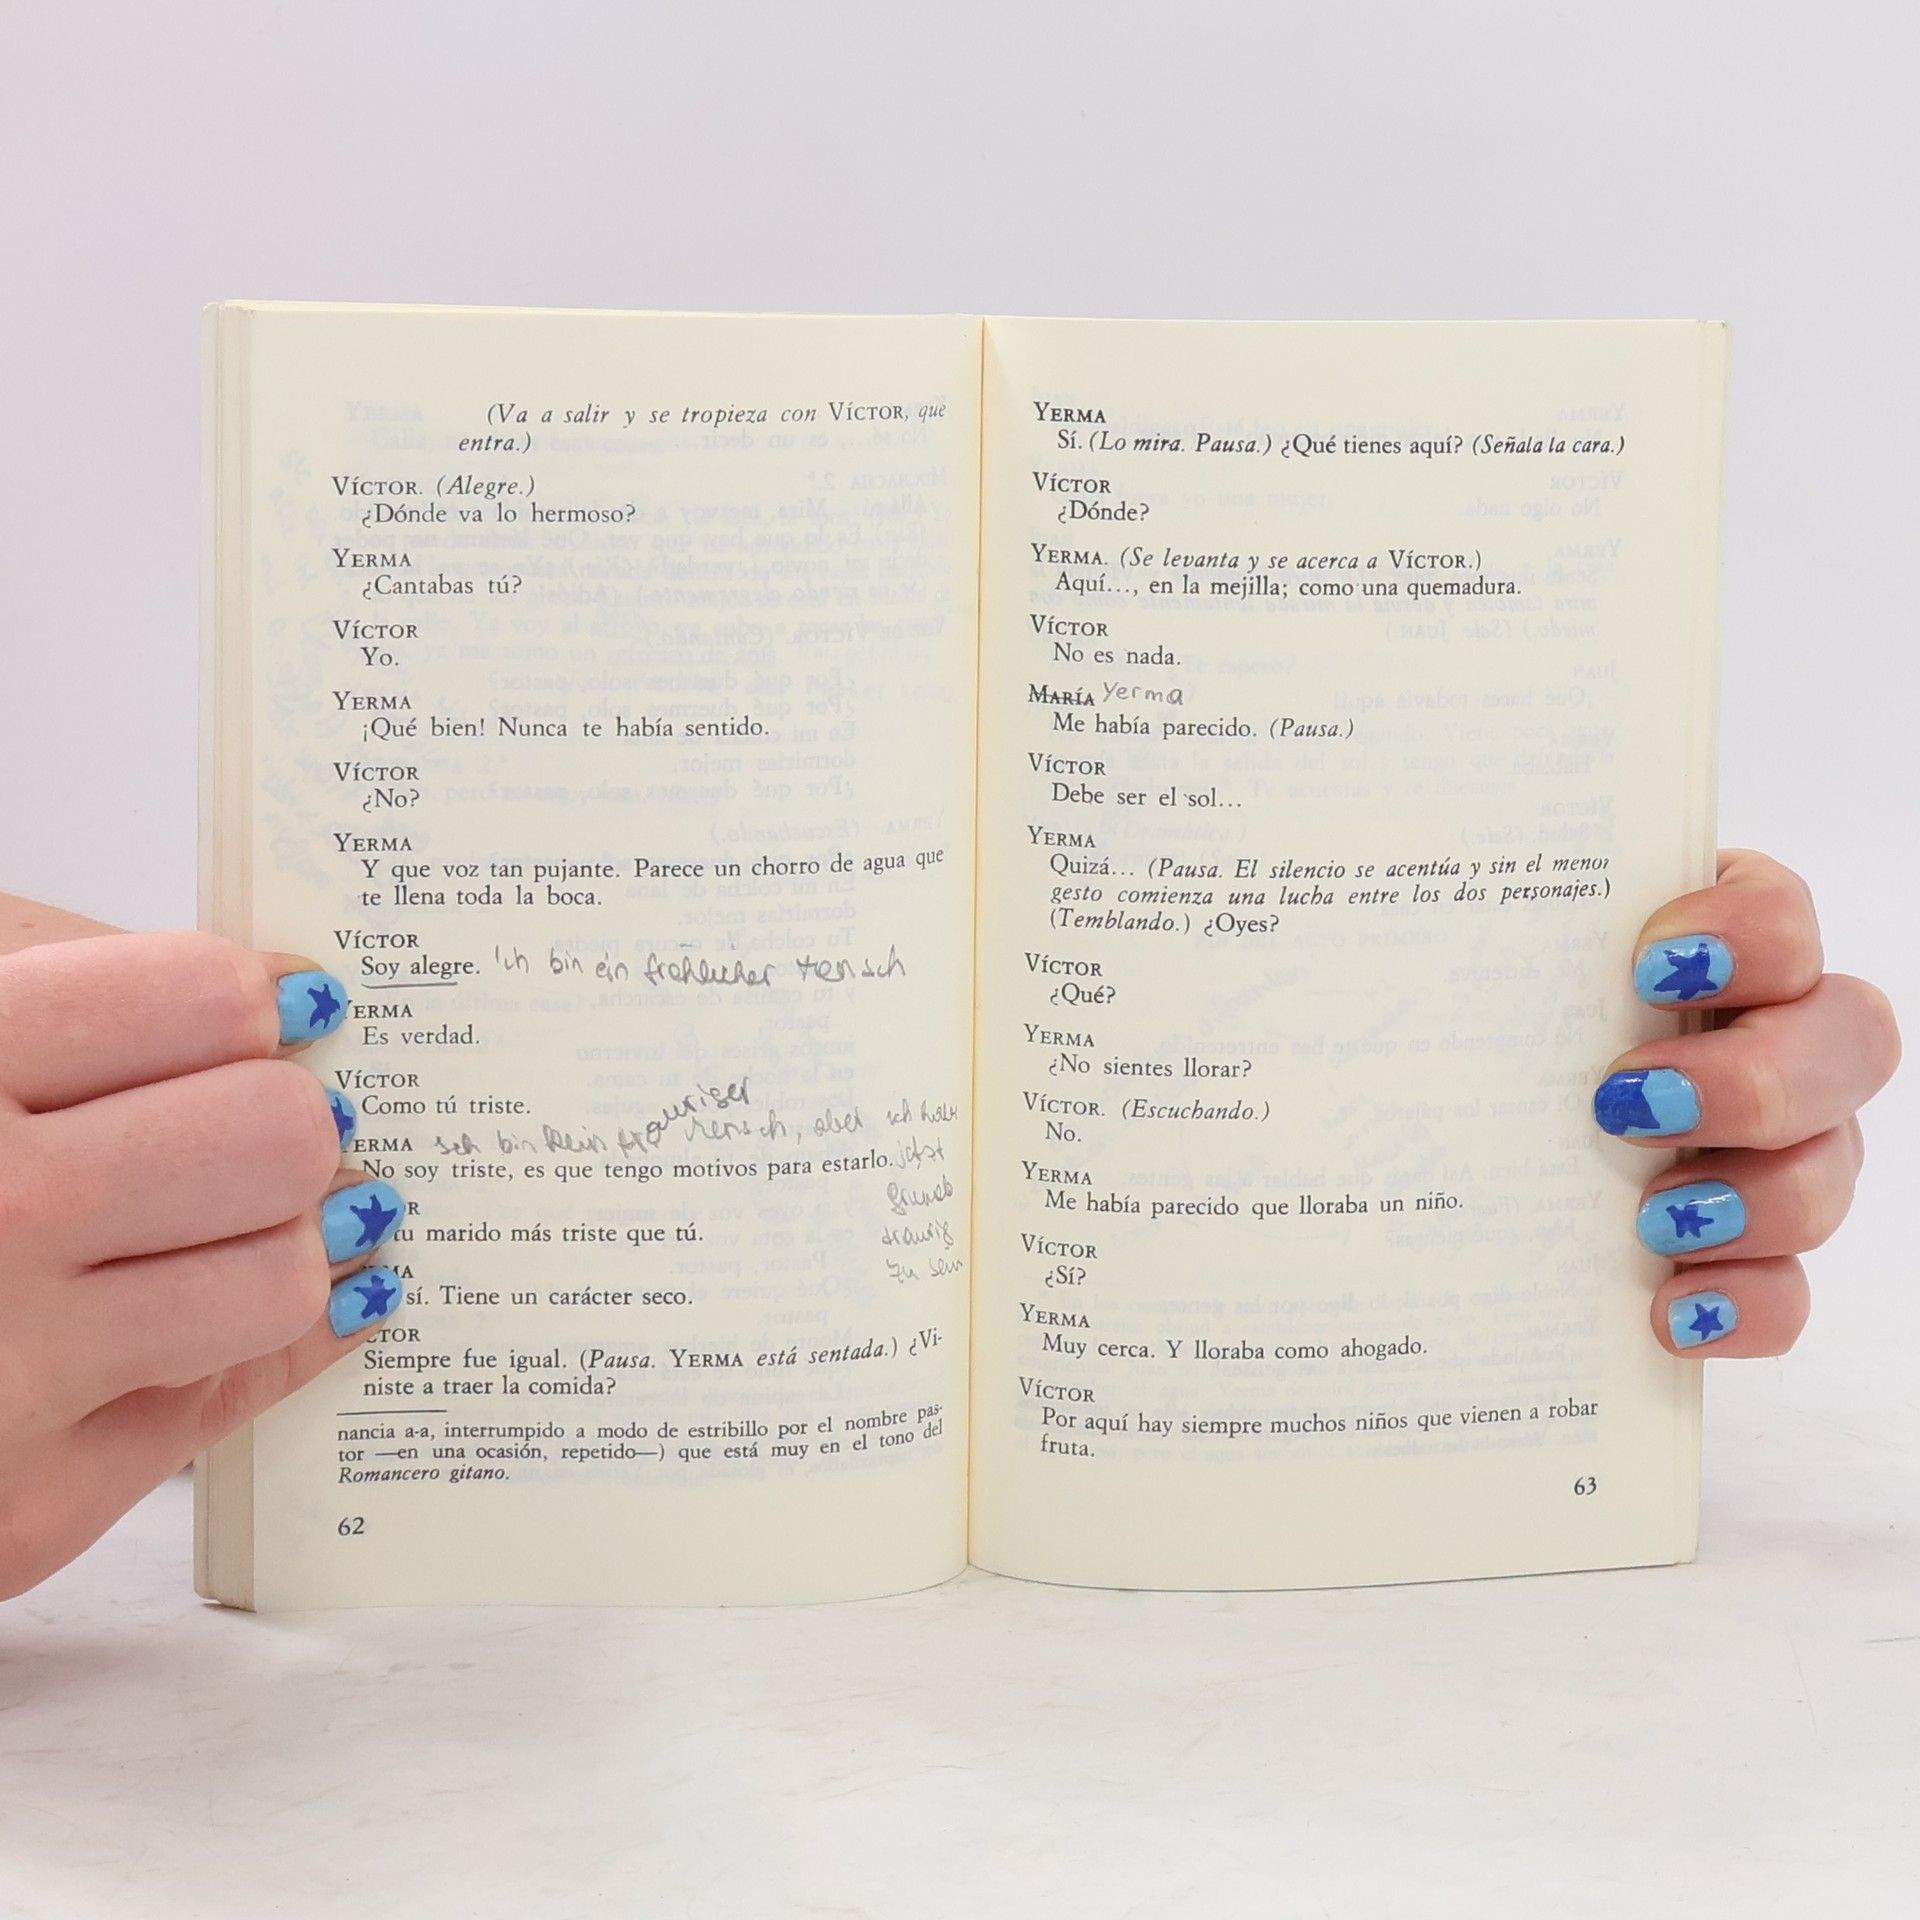 (Va a salir y se tropieza con VÍCTOR, que
entra.)
VÍCTOR. (Alegre.)
¿Dónde va lo hermoso?
YERMA
¿Cantabas tú?
VÍCTOR
Yo.
YERMA
¡Qué bien! Nunca te había sentido.
VÍCTOR
¿No?
YERMA
Y que voz tan pujante. Parece un chorro de agua que
te llena toda la boca.
VÍCTOR
Soy alegre. Ich bin ein fröhlicher Mensch
YERMA
Es verdad.
VÍCTOR
Como tú triste.
auriger
ERMA Ich bin kein tr Mensch, aber ich habe
No soy triste, es que tengo motivos para estarlo. jetzt
Grund
R
tu marido más triste que tú.
traurig
zu sein
MA
sí. Tiene un carácter seco.
CTOR
Siempre fue igual. (Pausa. YERMA está sentada.) ¿Vi-
niste a traer la comida?
nancia a-a, interrumpido a modo de estribillo por el nombre pas-
tor —en una ocasión, repetido—) que está muy en el tono del
Romancero gitano.
62
YERMA
Sí. (Lo mira. Pausa.) ¿Qué tienes aquí? (Señala la cara.)
VÍCTOR
¿Dónde?
YERMA. (Se levanta y se acerca a VÍCTOR.)
Aquí..., en la mejilla; como una quemadura.
VÍCTOR
No es nada.
MARÍA Yerma
Me había parecido. (Pausa.)
VÍCTOR
Debe ser el sol...
YERMA
Quizá... (Pausa. El silencio se acentúa y sin el menor
gesto comienza una lucha entre los dos personajes.)
(Temblando.) ¿Oyes?
VÍCTOR
¿Qué?
YERMA
¿No sientes llorar?
VÍCTOR. (Escuchando.)
No.
YERMA
Me había parecido que lloraba un niño.
VÍCTOR
¿Sí?
YERMA
Muy cerca. Y lloraba como ahogado.
VÍCTOR
Por aquí hay siempre muchos niños que vienen a robar
fruta.
63